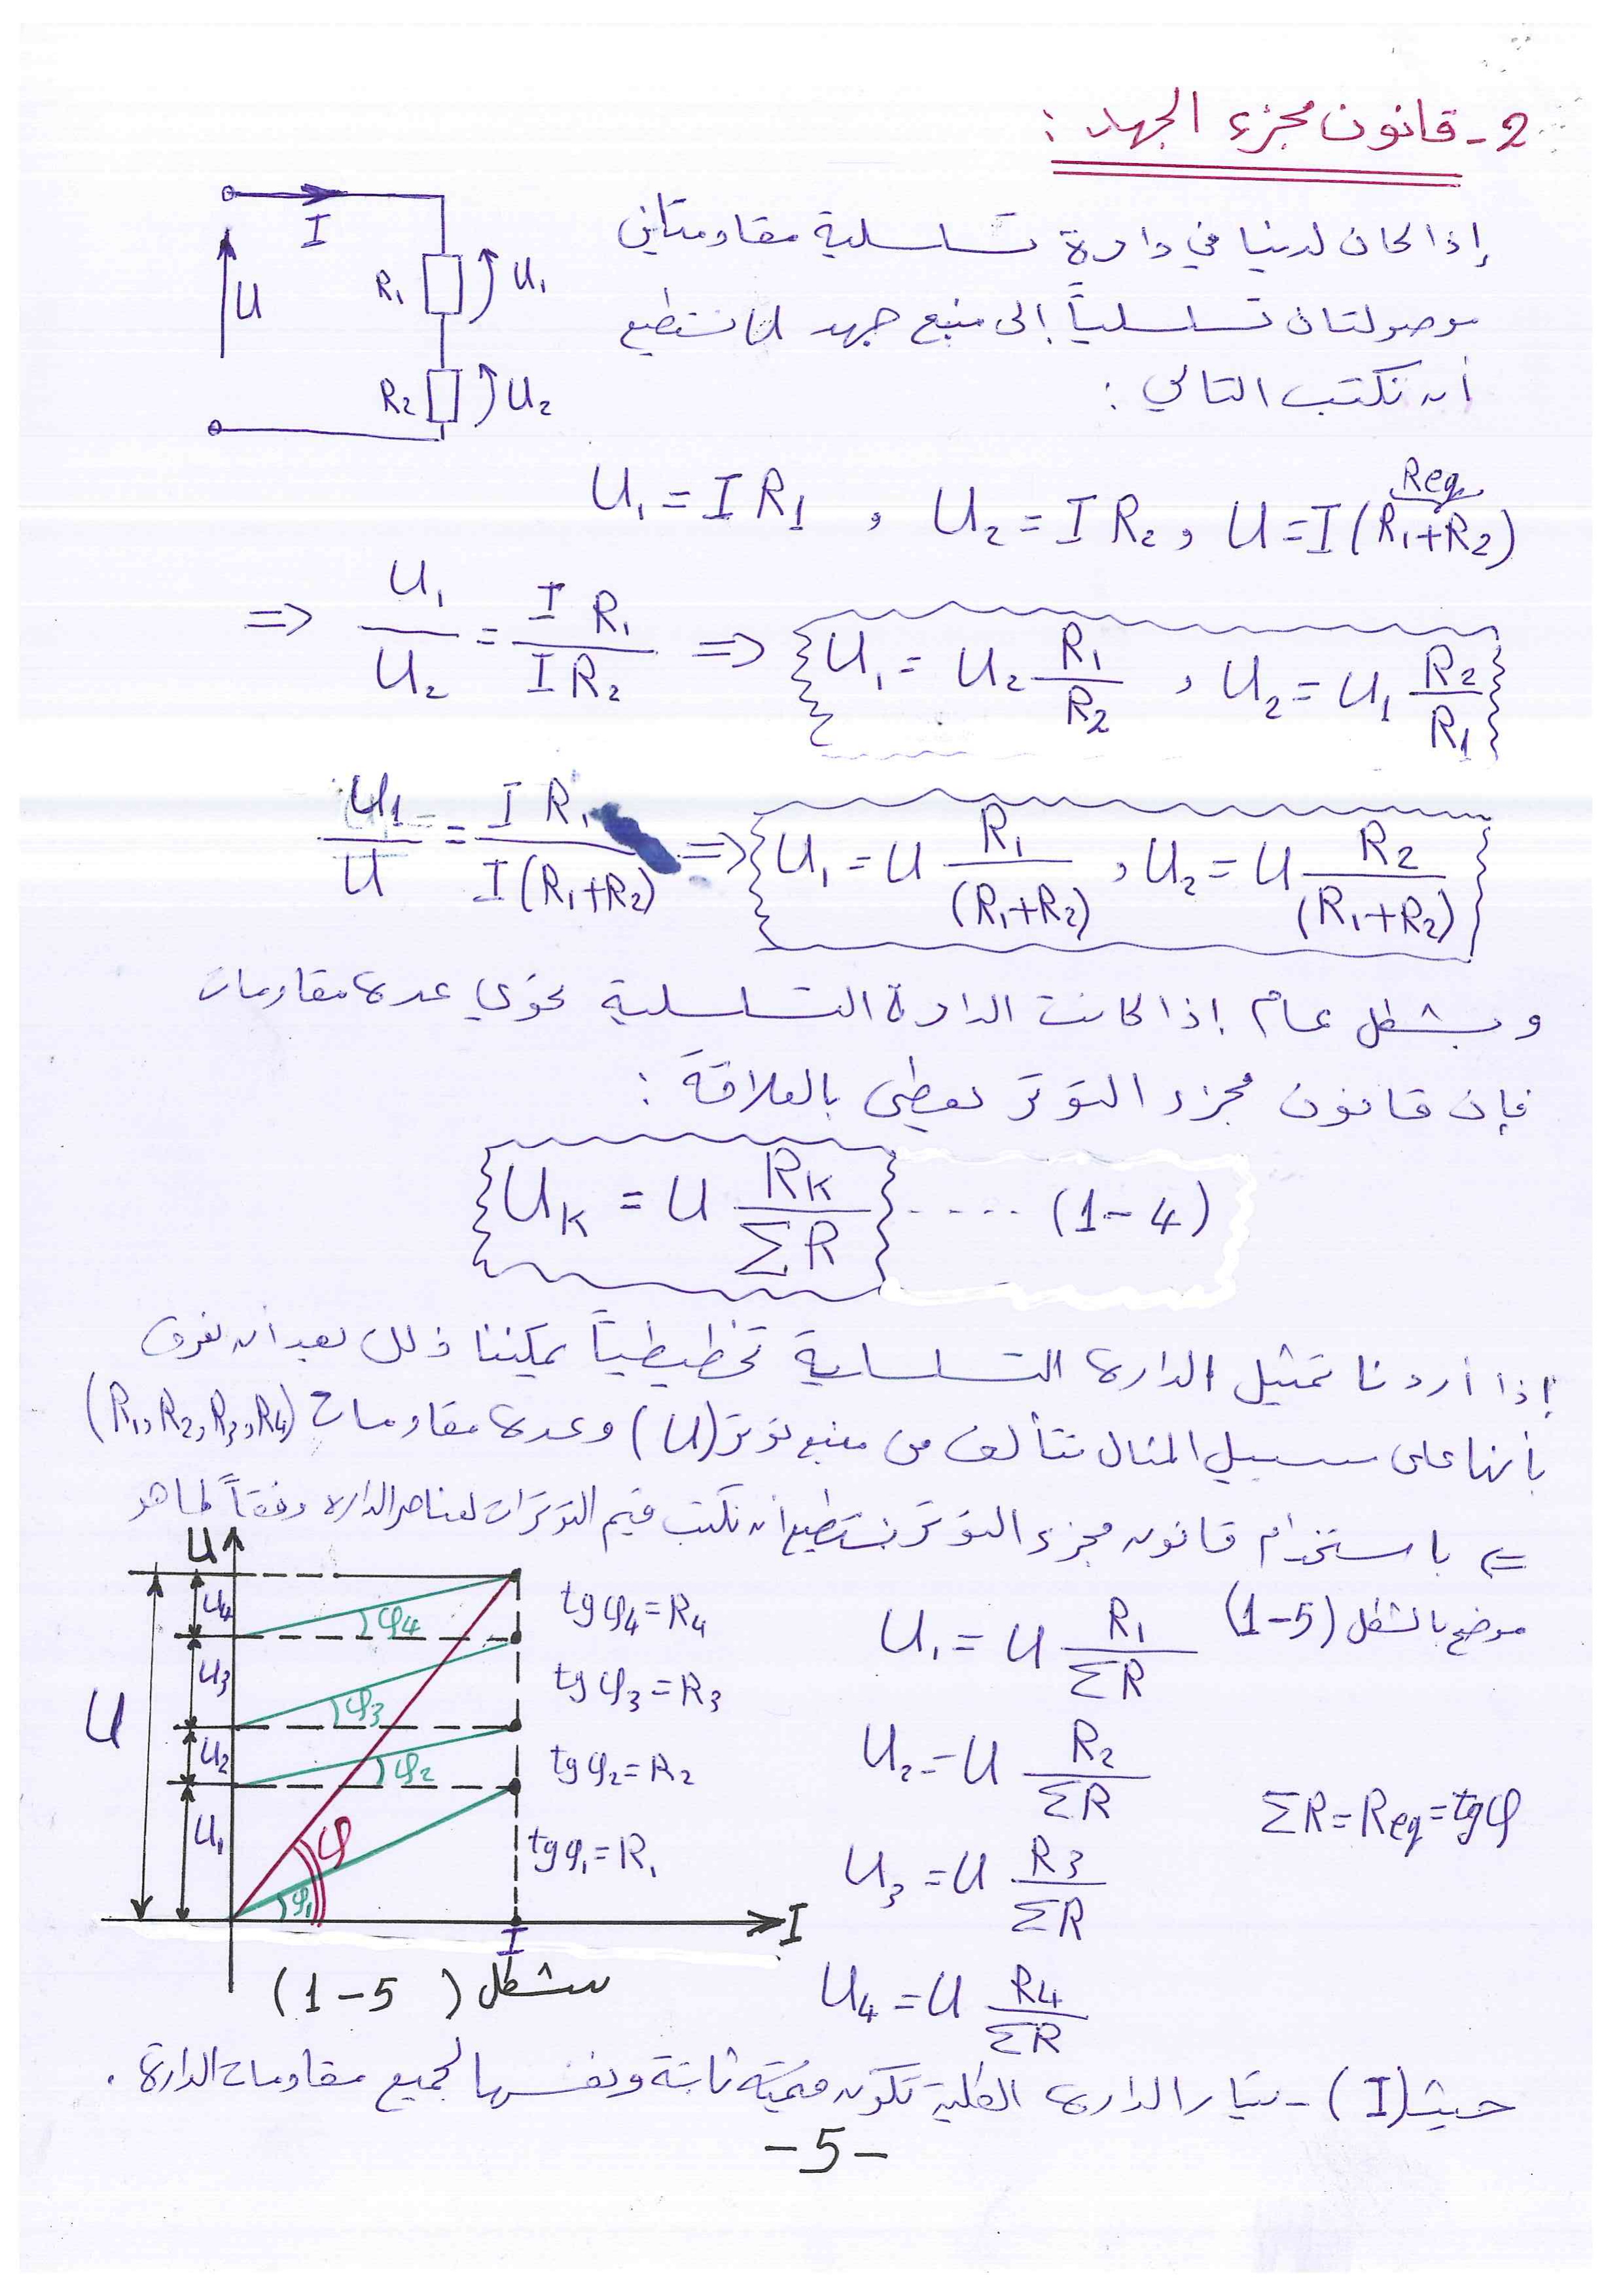 2- قانون مجزء الجهد :
إذا كان لدينا في دارة تسلسلية مقاومتان
موصولتان تسلسلياً إلى منبع جهد U نستطيع
أن نكتب التالي :
I
U
R₁
U₁
R₂
U₂
U₁ = I R₁ , U₂ = I R₂ , U = I (R₁+R₂) Req
=> U₁/U₂ = I R₁ / I R₂ => U₁ = U₂ R₁/R₂ , U₂ = U₁ R₂/R₁
U₁/U = I R₁ / I (R₁+R₂) => U₁ = U R₁/(R₁+R₂) , U₂ = U R₂/(R₁+R₂)
وبشكل عام إذا كانت الدارة التسلسلية تحوي عدة مقاومات
فإن قانون مجزء التوتر يعطى بالعلاقة :
U_K = U R_K/ΣR ..... (1-4)
إذا أردنا تمثيل الدارة التسلسلية تخطيطياً يمكننا ذلك بعد أن نعرف
بأنها على سبيل المثال تتألف من منبع توتر (U) وعدة مقاومات (R₁,R₂,R₃,R₄)
<= باستخدام قانون مجزء التوتر نستطيع أن نكتب قيم التوترات لعناصر الدارة وفقاً لما هو
موضح بالشكل (1-5)
U₁ = U R₁/ΣR
U₂ = U R₂/ΣR
ΣR = Req = tgφ
U₃ = U R₃/ΣR
U₄ = U R₄/ΣR
U
U₄
U₃
U₂
U₁
U
φ₄
φ₃
φ₂
φ
φ₁
tgφ₄ = R₄
tgφ₃ = R₃
tgφ₂ = R₂
tgφ₁ = R₁
I
I
شكل (1-5)
حيث (I) - تيار الدارة الكلية تكون قيمته ثابتة ونفسها لجميع مقاومات الدارة .
-5-